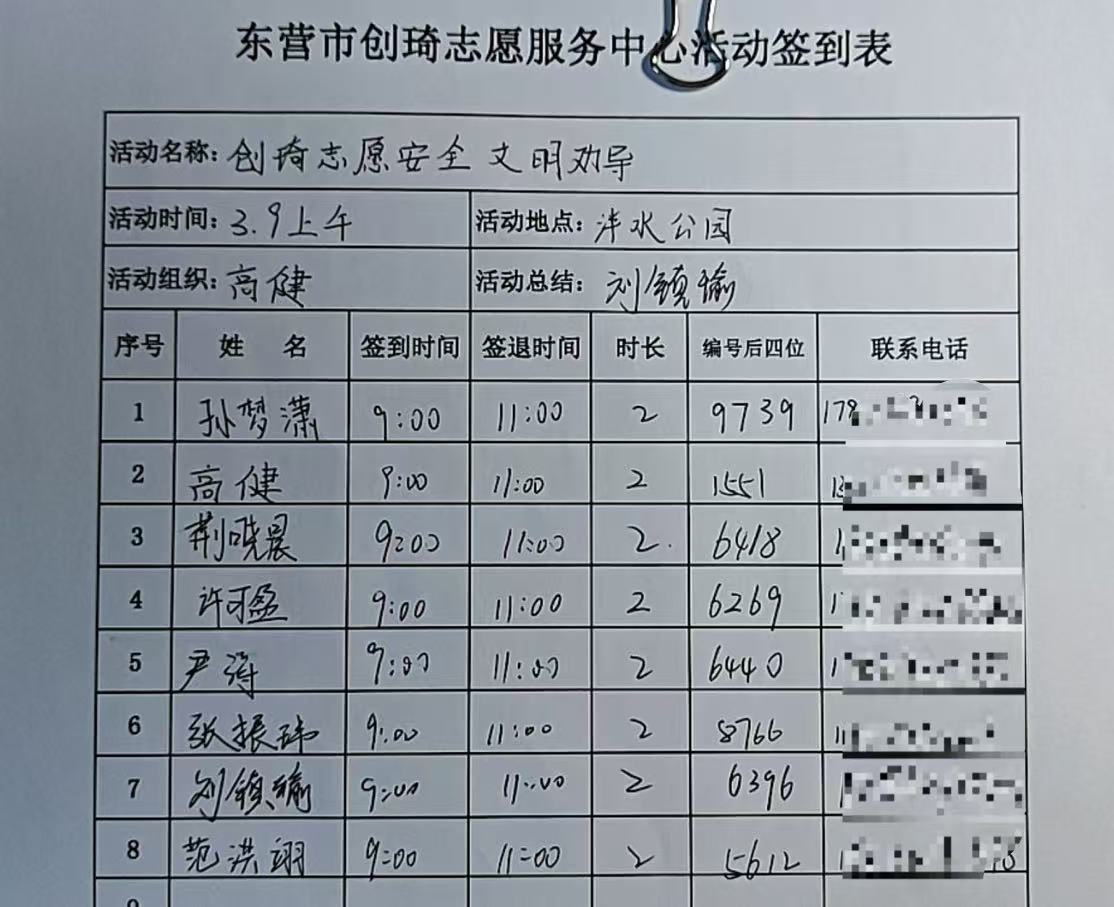 东营市创琦志愿服务中心活动签到表
活动名称: 创琦志愿安全 文明劝导
活动时间: 3.9上午 活动地点: 泮水公园
活动组织: 高健 活动总结: 刘镇瑜
序号 姓 名 签到时间 签退时间 时长 编号后四位 联系电话
1 孙梦潇 9:00 11:00 2 9739 178
2 高健 9:00 11:00 2 1551
3 荆晓晨 9:00 11:00 2. 6418
4 许可盈 9:00 11:00 2 6269
5 尹涛 9:00 11:00 2 6440
6 张振玮 9:00 11:00 2 8766
7 刘镇瑜 9:00 11:00 2 6396
8 范洪翊 9:00 11:00 2 5612